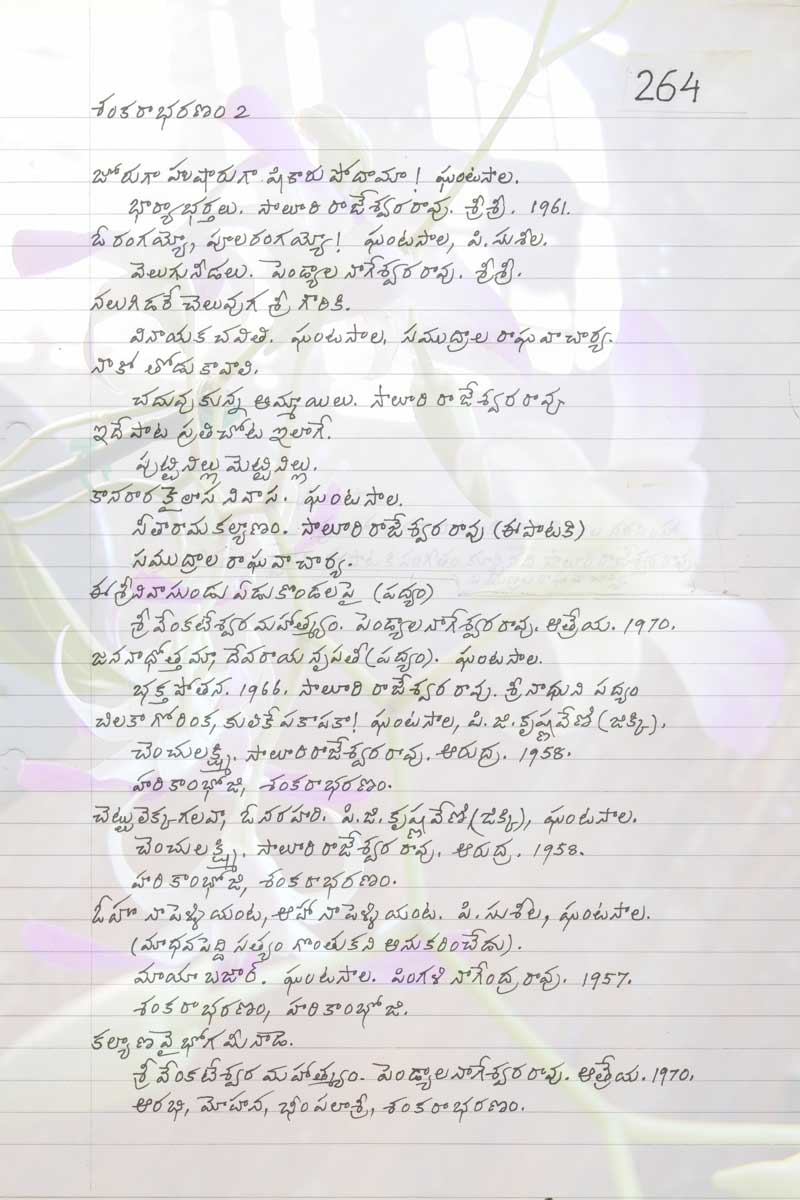 264
శంకరాభరణం 2
జోరుగా హుషారుగా షికారు పోదామా! ఘంటసాల.
భార్యాభర్తలు. సాలూరి రాజేశ్వరరావు. శ్రీశ్రీ. 1961.
ఓ రంగయ్యో, పూలరంగయ్యో! ఘంటసాల, పి.సుశీల.
వెలుగునీడలు. పెండ్యాల నాగేశ్వరరావు. శ్రీశ్రీ.
నలుగిడరే చెలువుగ శ్రీ గౌరికి.
వినాయక చవితి. ఘంటసాల, సముద్రాల రాఘవాచార్య.
నాకో తోడు కావాలి.
చదువుకున్న అమ్మాయిలు. సాలూరి రాజేశ్వరరావు
ఇదేపాట ప్రతిచోట ఇలాగే.
పుట్టినిల్లు మెట్టినిల్లు.
కానరార కైలాస నివాస. ఘంటసాల.
సీతారామకల్యాణం. సాలూరి రాజేశ్వరరావు (ఈపాటకి)
సముద్రాల రాఘవాచార్య.
ఈ శ్రీనివాసుండు ఏడుకొండలపై (పద్యం)
శ్రీ వేంకటేశ్వర మహాత్మ్యం. పెండ్యాల నాగేశ్వరరావు. ఆత్రేయ. 1970.
జననాథోత్తమా, దేవరాయ నృపతీ (పద్యం). ఘంటసాల.
భక్త పోతన. 1966. సాలూరి రాజేశ్వరరావు. శ్రీనాథుని పద్యం
చిలకా గోరింక, కులికే పకాపకా! ఘంటసాల, పి.జి.కృష్ణవేణి (జిక్కి).
చెంచులక్ష్మి. సాలూరి రాజేశ్వరరావు. ఆరుద్ర. 1958.
హరికాంభోజి, శంకరాభరణం.
చెట్టులెక్కగలవా, ఓ నరహరి. పి.జి.కృష్ణవేణి (జిక్కి), ఘంటసాల.
చెంచులక్ష్మి. సాలూరి రాజేశ్వరరావు. ఆరుద్ర. 1958.
హరికాంభోజి, శంకరాభరణం.
ఓహొ నాపెళ్ళియంట, ఆహా నాపెళ్ళియంట. పి.సుశీల, ఘంటసాల.
(మాధవపెద్ది సత్యం గొంతుకని అనుకరించేడు).
మాయా బజార్. ఘంటసాల. పింగళి నాగేంద్రరావు. 1957.
శంకరాభరణం, హరికాంభోజి.
కల్యాణవైభోగమీనాడె.
శ్రీ వేంకటేశ్వర మహాత్మ్యం. పెండ్యాల నాగేశ్వరరావు. ఆత్రేయ. 1970.
ఆరభి, మోహన, భీంపలాశ్రీ, శంకరాభరణం.